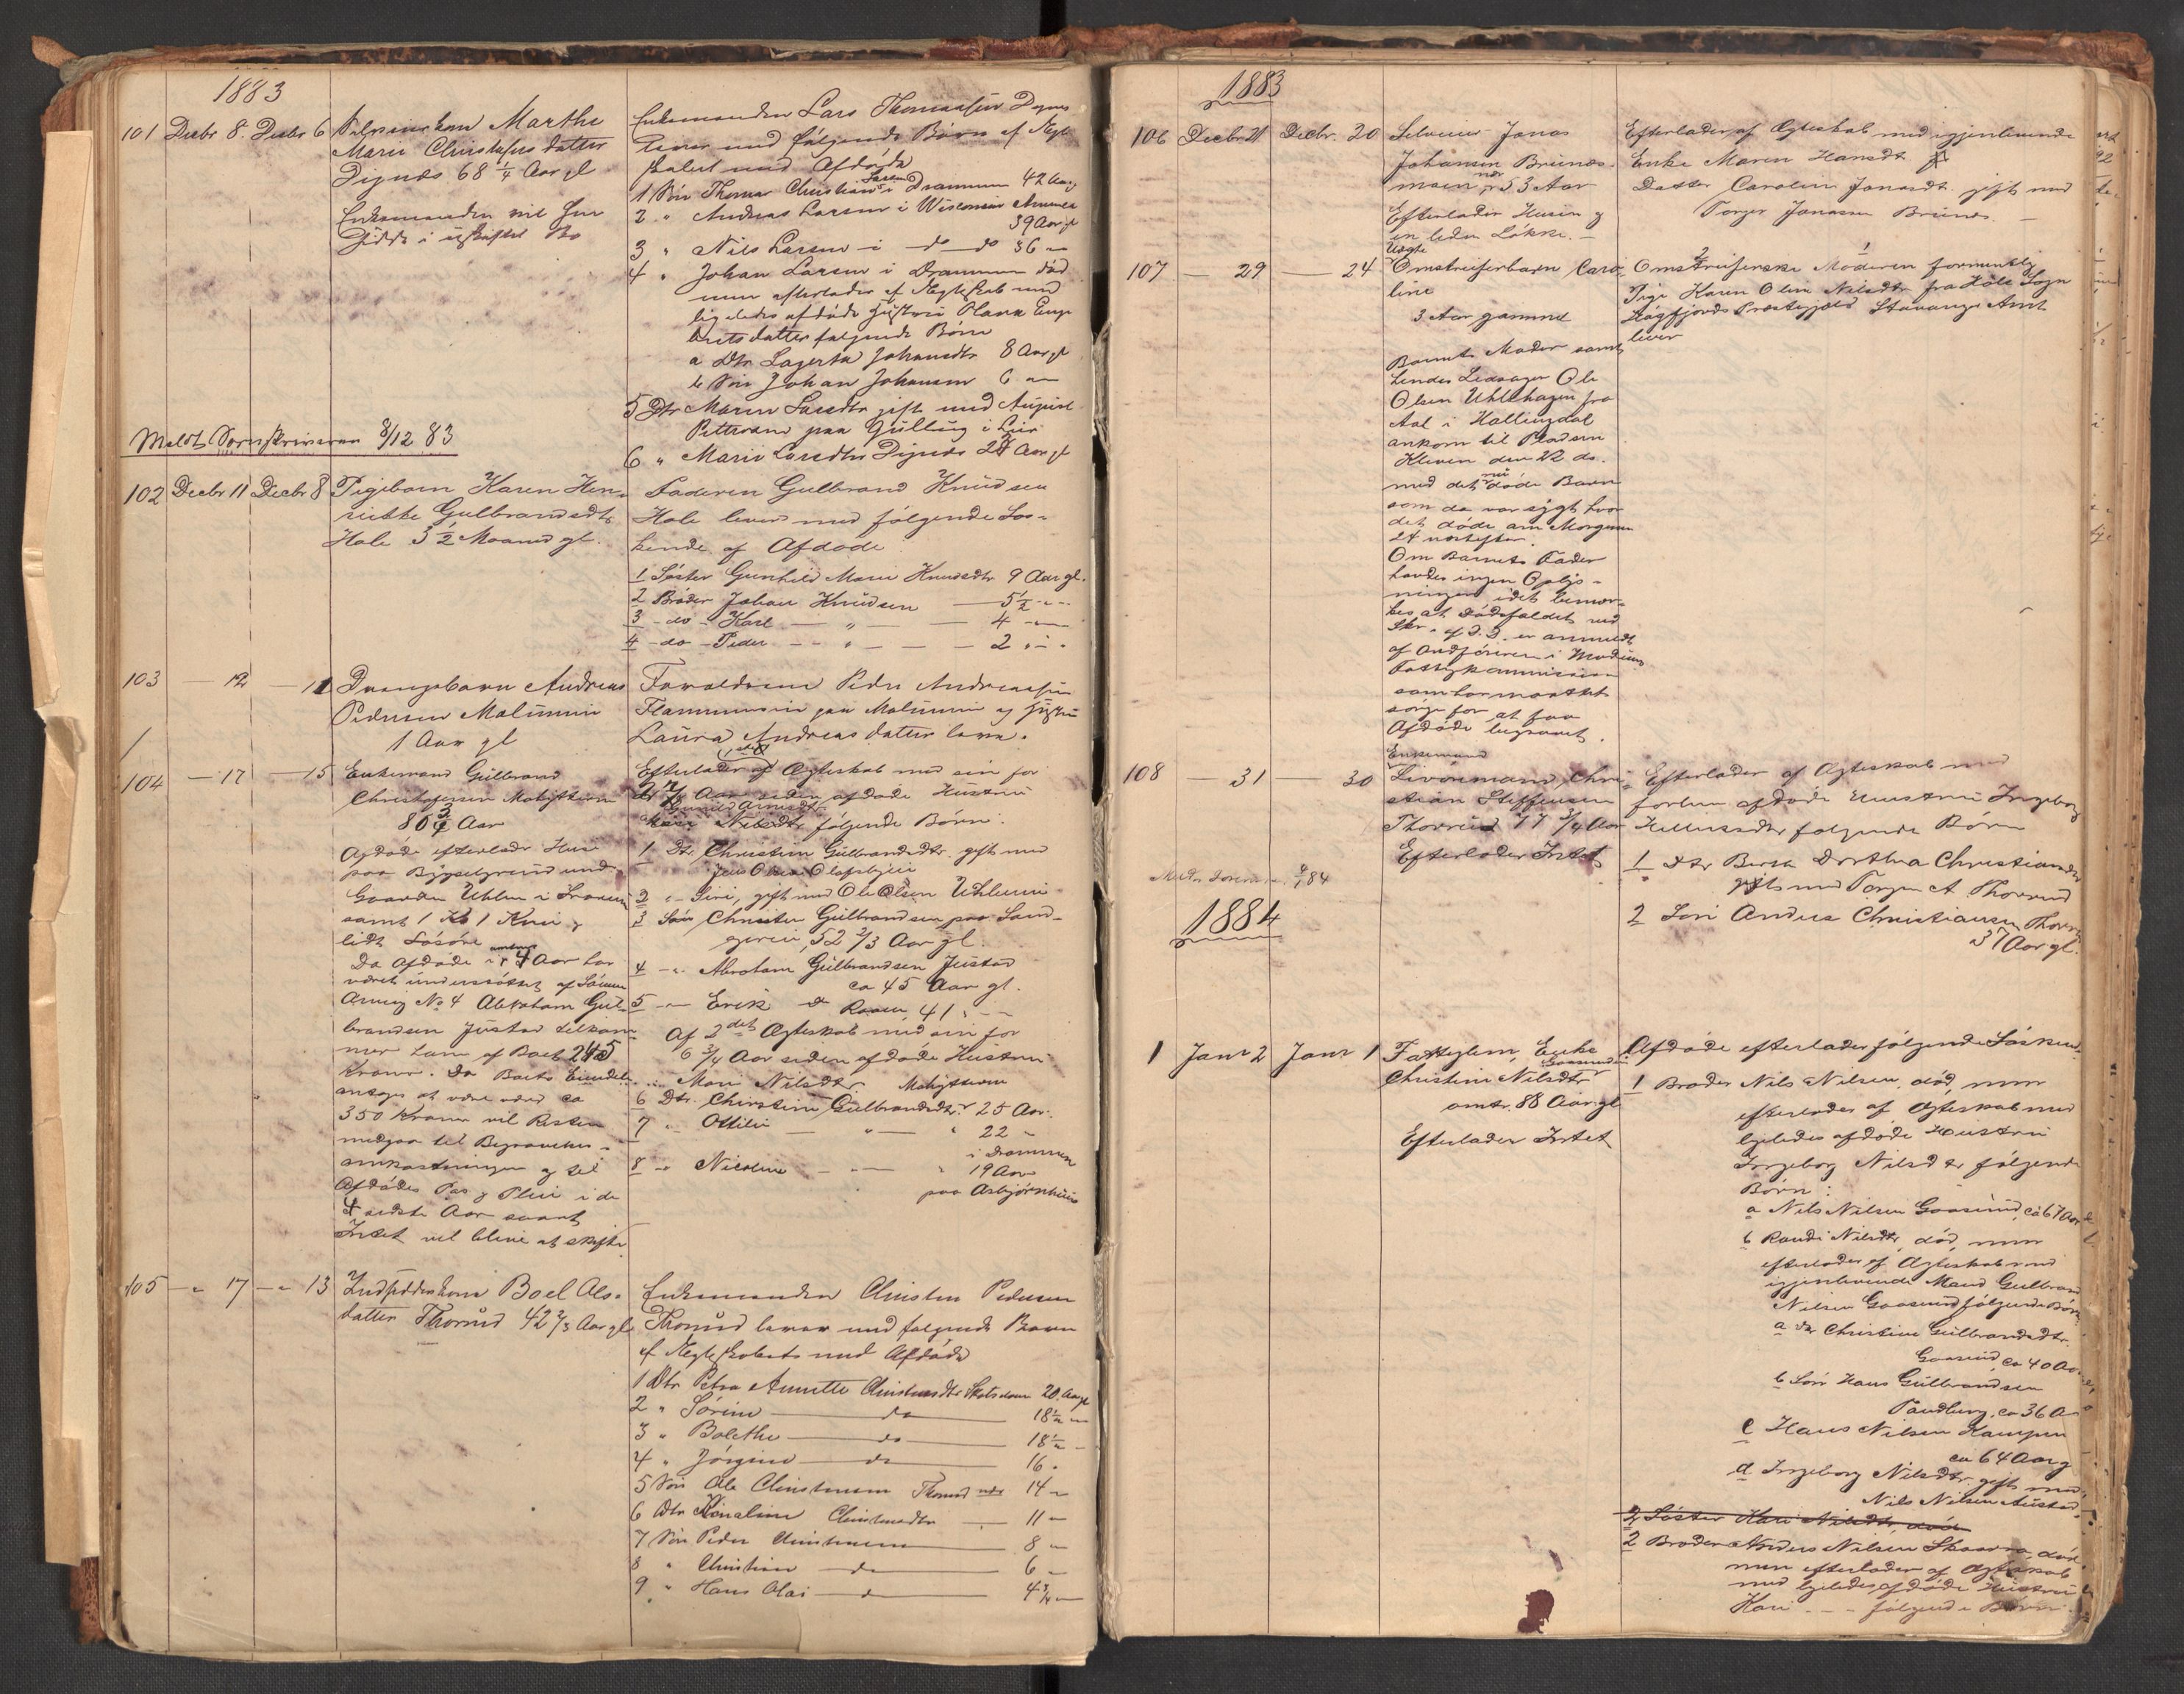 1883
101 Decbr 8. Decbr 6
Marthe
Marie Christofersdatter
Dignæs 68 1/4 Aar gl
Enkemanden
i uskiftet Bo
Enkemanden Lars Thomassen Dignes
lever med følgende Børn af Ægte-
skabet med Afdøde
1 Søn Thomas Christian Larsen i Drammen 42 Aar
2 " Andreas Larsen i Wisconsin Amerika
39 Aar gl
3 " Nils Larsen i do do 36 "
4 " Johan Larsen i Drammen død
men efterlader af Ægteskab med
ligeledes afdøde Hustru Olava Enge-
bretsdatter følgende Børn
a Dtr Lagerta Johansdtr 8 Aar gl
b Søn Johan Johansen 6 "
5 Dtr Maren Larsdtr gift med August
Pettersen paa Gulling i Lier
6 " Marie Larsdtr Dignæs Aar gl
Meldt Sorenskriveren 8/12 83
102 Decbr 11 Decbr 8
Pigebarn Karen Hen-
riette Gulbrandsdtr
Hole 3 1/2 Maaned gl.
Faderen Gulbrand Knudsen
Hole lever med følgende Søs-
kende af Afdøde
1 Søster Gunhild Marie Knudsdtr 9 Aar gl.
2 Broder Johan Knudsen 5 1/2 "
3 - do - Karl " 4 "
4 - do - Peder " 2 "
103 - 12 - 11
Drengebarn Andreas
Pedersen Malimmi
1 Aar gl
Forældrene Peder Andreassen
paa og Hustru
Laura Andreasdatter lever.
104 - 17 - 15
Enkemand Gulbrand
Christofersen
86 3/4 Aar
Afdøde efterlader Huse
paa Bygselgrund under
Gaarden Uhlen i
samt 1 Ko 1 Kvie og
lidt Løsøre
Da Afdøde i 4 Aar har
været understøttet af Sønnen
Arving No 4 Abraham Gul-
brandsen Justad tilkom-
mer ham af Boet 240
Kroner. Da Boets Eiendele
antages at være værd ca
350 Kroner vil Resten
medgaa til Begravelses-
omkostninger og til
Afdødes Pas og Pleie i de
4 sidste Aar saant
Intet vil blive at skifte
Efterlader af Ægteskab med sin for
Aar siden afdøde Hustru
Gunild Arnesdtr
følgende Børn:
1 Dtr Christine Gulbrandsdtr. gift med
Jens Olsen Olafsbyen
2 " Siri, gift med Ole Olsen Uhleneie
3 Søn Christen Gulbrandsen paa Sand-
52 2/3 Aar gl.
4 " Abraham Gulbrandsen Justad
ca 45 Aar gl.
5 " Erik d 41 "
Af 2det Ægteskab med sin for
6 3/4 Aar siden afdøde Hustru
Mari Nilsdtr
6 Dtr. Christine Gulbrandsdtr. 25 Aar.
7 " Ottilie " 22 "
i Drammen
8 " Nicoline " 19 Aar
paa Asbjørnhuus
105 " 17 " 13
Boel Als-
datter Thorud 42 2/3 Aar gl
Enkemanden Christen Pedersen
Thorud lever med følgende Børn
af Ægteskabet med Afdøde
1 Dtr Petra Annette Christensdtr 20 Aar gl
2 " Sørine do 18 1/2 "
3 " Bolethe do 18 1/2 "
4 " Jørgine do 16 "
5 Søn Ole Christensen Thorud 14 "
6 Dtr Christensdtr 11 "
7 Søn Peder Christensen 8 "
8 " Christian do 6 "
9 " Hans Olai do 4 3/4 "
1883
106 Decbr 21 Decbr. 20
Selveier Jonas
Johansen Brünes-
moen nær 53 Aar
Efterlader Husene og
en liden Løkke. -
Efterlader af Ægteskab med igjenlevende
Enke Maren Hansdtr
Datter Caroline Jonasdtr. gift med
Torger Jonassen Brünes. -
107 - 29 - 24
Uægte
Omstreiferbarn Caro-
line
3 Aar gammel
Barnets Moder samt
hendes Ledsager Ole
Olsen Uhlshagen fra
Aal i Hallingdal
ankom til Pladsen
Kleven den 22 ds.
med det nu døde Barn
som da var sygt hvor
det døde om Morgenen
24 næstefter.
Om Barnets Fader
havdes ingen Oplys-
ninger idet bemær-
kes at Dødsfaldet ved
Skr. af D.D. er anmeldt
af Ordføreren i Modums
Fattigkommission
som har maattet
sørge for at faa
Afdøde begravet.
Omstreiferske Moderen formentlig
Pige Karen Oline Nilsdtr fra Høle Sogn
Høgsfjords Præstegjæld Stavanger Amt
lever
108 - 31 - 30
Enkemand
Livøremand Chri-
stian Steffensen
Thorrud 77 3/4 Aar
Efterlader Intet
Efterlader af Ægteskab med
forhen afdøde Hustru Ingeborg
følgende Børn
1 Dtr Berthe Dorthea Christiansdtr
gift med Torger A. Thorrud
2 Søn Anders Christiansen Thorrud
37 Aar gl.
84
1884
1 Janr 2 Janr 1
Fattiglem, Enke
Christine Nilsdtr Gaasrud
omtr. 88 Aar gl
Efterlader Intet
Afdøde efterlader følgende Søskende
1 Broder Nils Nilsen, død, men
efterlader af Ægteskab med
ligeledes afdøde Hustru
Ingeborg Nilsdtr følgende
Børn:
a Nils Nilsen Gaasrud, ca 67 Aar
b Randi Nilsdtr, død, men
efterlader af Ægteskab med
igjenlevende Mand Gulbrand
Nilsen Gaasrud følgende Børn
a Dtr Christine Gulbrandsdtr.
Gaasrud ca 40 Aar
b Søn Hans Gulbrandsen
ca 36 A
c Hans Nilsen Kampen
ca 64 Aar g
d Ingeborg Nilsdtr gift med
Nils Nilsen
2 Søster Kari Nilsdtr død
2 Broder Anders Nilsen Skaarra, død
men efterlader af Ægteskab
med ligeledes afdøde Hustru
Kari - - - følgende Børn